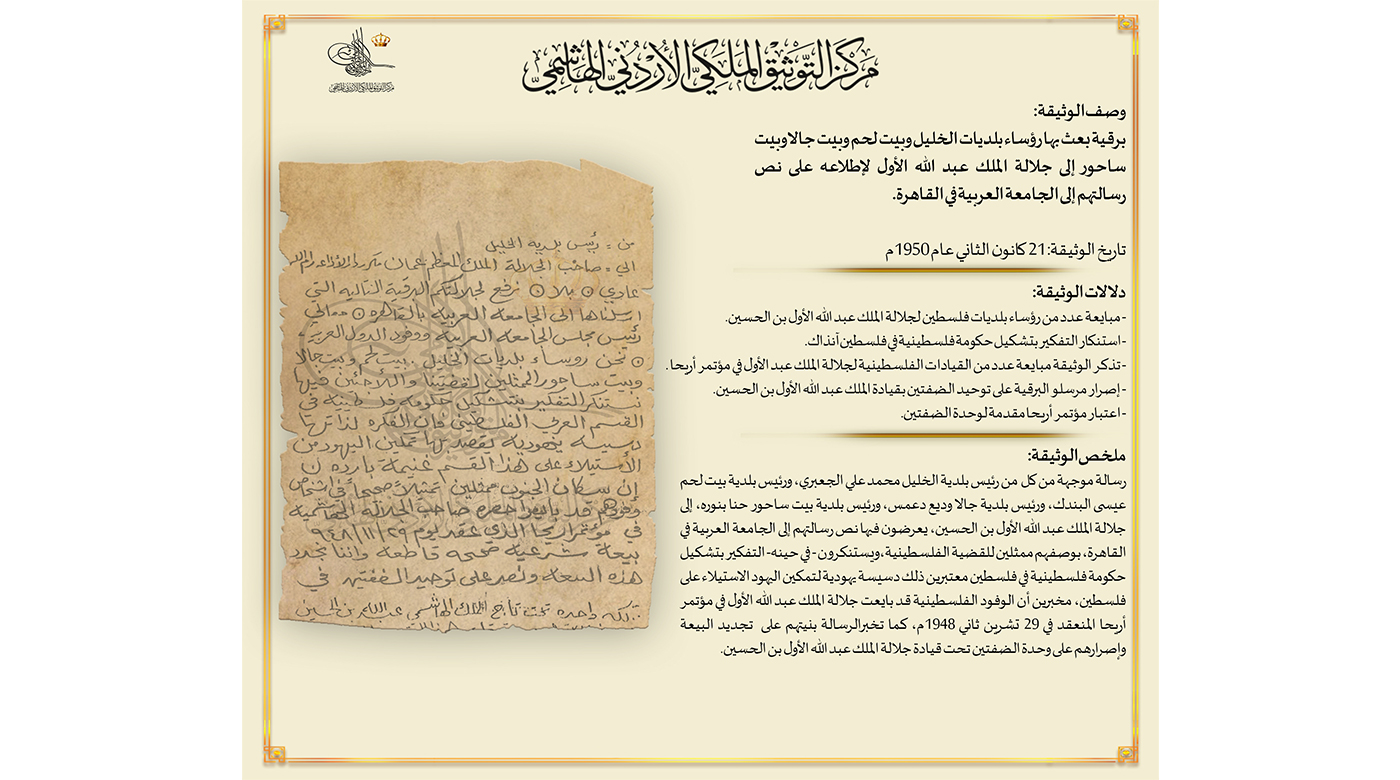 مركز التوثيق الملكي الأردني الهاشمي
مركز التوثيق الملكي الأردني الهاشمي
وصف الوثيقة:
برقية بعث بها رؤساء بلديات الخليل وبيت لحم وبيت جالا وبيت
ساحور إلى جلالة الملك عبد الله الأول لإطلاعه على نص
رسالتهم إلى الجامعة العربية في القاهرة.
تاريخ الوثيقة: 21 كانون الثاني عام 1950م
دلالات الوثيقة:
- مبايعة عدد من رؤساء بلديات فلسطين لجلالة الملك عبد الله الأول بن الحسين.
- استنكار التفكير بتشكيل حكومة فلسطينية في فلسطين آنذاك.
- تذكر الوثيقة مبايعة عدد من القيادات الفلسطينية لجلالة الملك عبد الأول في مؤتمر أريحا.
- إصرار مرسلو البرقية على توحيد الضفتين بقيادة الملك عبد الله الأول بن الحسين.
- اعتبار مؤتمر أريحا مقدمة لوحدة الضفتين.
ملخص الوثيقة:
رسالة موجهة من كل من رئيس بلدية الخليل محمد علي الجعبري، ورئيس بلدية بيت لحم
عيسى البندك، ورئيس بلدية جالا وديع دعمس، ورئيس بلدية بيت ساحور حنا بنوره، إلى
جلالة الملك عبد الله الأول بن الحسين، يعرضون فيها نص رسالتهم إلى الجامعة العربية في
القاهرة، بوصفهم ممثلين للقضية الفلسطينية، ويستنكرون - في حينه- التفكير بتشكيل
حكومة فلسطينية في فلسطين معتبرين ذلك دسيسة يهودية لتمكين اليهود الاستيلاء على
فلسطين، مخبرين أن الوفود الفلسطينية قد بايعت جلالة الملك عبد الله الأول في مؤتمر
أريحا المنعقد في 29 تشرين ثاني 1948م، كما تخبر الرسالة بنيتهم على تجديد البيعة
وإصرارهم على وحدة الضفتين تحت قيادة جلالة الملك عبد الله الأول بن الحسين.
من = رئيس بلدية الخليل
الى = صاحب الجلالة الملك المعظم عمان
عادي ⊙ بلا ⊙ نرفع لجلالتكم البرقية التالية التي
ارسلناها الى الجامعة العربية بالقاهره ⊙ معالي
رئيس مجلس الجامعة العربية ووفود الدول العربية
⊙ نحن روساء بلديات الخليل بيت لحم وبيت جالا
وبيت ساحور الممثلين لقضيتنا واللاجئين فيها
نستنكر التفكير بتشكيل حكومة فلسطينية في
القسم العربي الفلسطيني فان الفكره لذا نرها
دسيسة يهودية يقصد بها تمكين اليهود من
الأستيلاء على هذا القسم غنيمة بارده
إن سكان الجنوب ممثلين تمثيلا صحيحا في اشخاص
وفودهم قد بايعوا حضرة صاحب الجلالة الهاشمية
في مؤتمر اريحا الذي عقد يوم ٢٩/١١/٩٤٨
بيعة شرعية صحيحه قاطعه واننا نجدد
هذه البيعه ونصر على توحيد الضفتين في
واحده تحت تاج الملك الهاشمي عبدالله بن الحسين